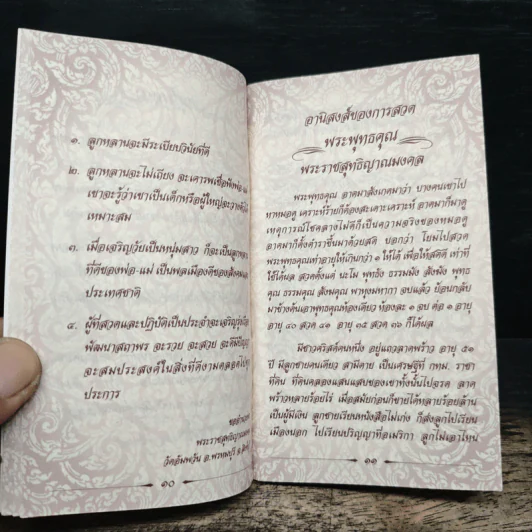 ๑. ลูกหลานจะมีระเบียบวินัยที่ดี
๒. ลูกหลานจะไม่เถียง จะเคารพเชื่อฟังพ่อ แม่
เขาจะรู้ว่าเขาเป็นเด็กหรือผู้ใหญ่จะวางตัวได้
เหมาะสม
๓. เมื่อเจริญวัยเป็นหนุ่มสาว ก็จะเป็นลูกหลาน
ที่ดีของพ่อ-แม่ เป็นพลเมืองดีของสังคมและ
ประเทศชาติ
๔. ผู้ที่สวดและปฏิบัติเป็นประจำจะเจริญรุ่งเรือง
พัฒนาสถาพร จะรวย จะสวย จะดีมีปัญญา
จะสมประสงค์ในสิ่งที่ดีงามตลอดไปทุก
ประการ
ขออำนวยพร
พระราชสุทธิญาณมงคล
วัดอัมพวัน อ.พรหมบุรี จ.สิงห์
๑๐
อานิสงส์ของการสวด
พระพุทธคุณ
พระราชสุทธิญาณมงคล
พระพุทธคุณ อาตมาสังเกตมาว่า บางคนเขาไป
หาหมอดู เคราะห์ร้ายก็ต้องสะเดาะเคราะห์ อาตมาก็มาดู
เหตุการณ์โชคลางไม่ดีก็เป็นความจริงของหมอดู
อาตมาก็ตั้งตำราขึ้นมาด้วยสติ บอกว่า โยมไปสวด
พระพุทธคุณเท่าอายุให้เกินกว่า ๑ ให้ได้ เพื่อให้สติดี เท่าที่
ใช้ได้ผล สวดตั้งแต่ นะโม พุทธัง ธรรมมัง สังฆัง พุทธ
คุณ ธรรมคุณ สังฆคุณ พาหุงมหากา จบแล้ว ย้อนกลับ
มาข้างต้นเอาพุทธคุณห้องเดียว ห้องละ ๑ จบ ต่อ ๑ อายุ
อายุ ๔๐ สวด ๔๑ อายุ ๓๕ สวด ๓๖ ก็ได้ผล
มีชาวคริสต์คนหนึ่ง อยู่แถวลาดพร้าว อายุ ๕๑
ปี มีลูกชายคนเดียว สามีตาย เป็นเศรษฐีที่ กทม. ราคา
ที่ดิน ที่ดินตลองแสนแสบของเขาทั้งนั้นไปจรด ลาด
พร้าวหลายร้อยไร่ เมื่อสมัยก่อนก็ขายได้หลายร้อยล้าน
เป็นผู้มีเงิน ลูกชายเรียนหนังสือไม่เก่ง ก็ส่งลูกไปเรียน
เมืองนอก ไปเรียนปริญญาที่อเมริกา ลูกไม่เอาไหน
๑๑